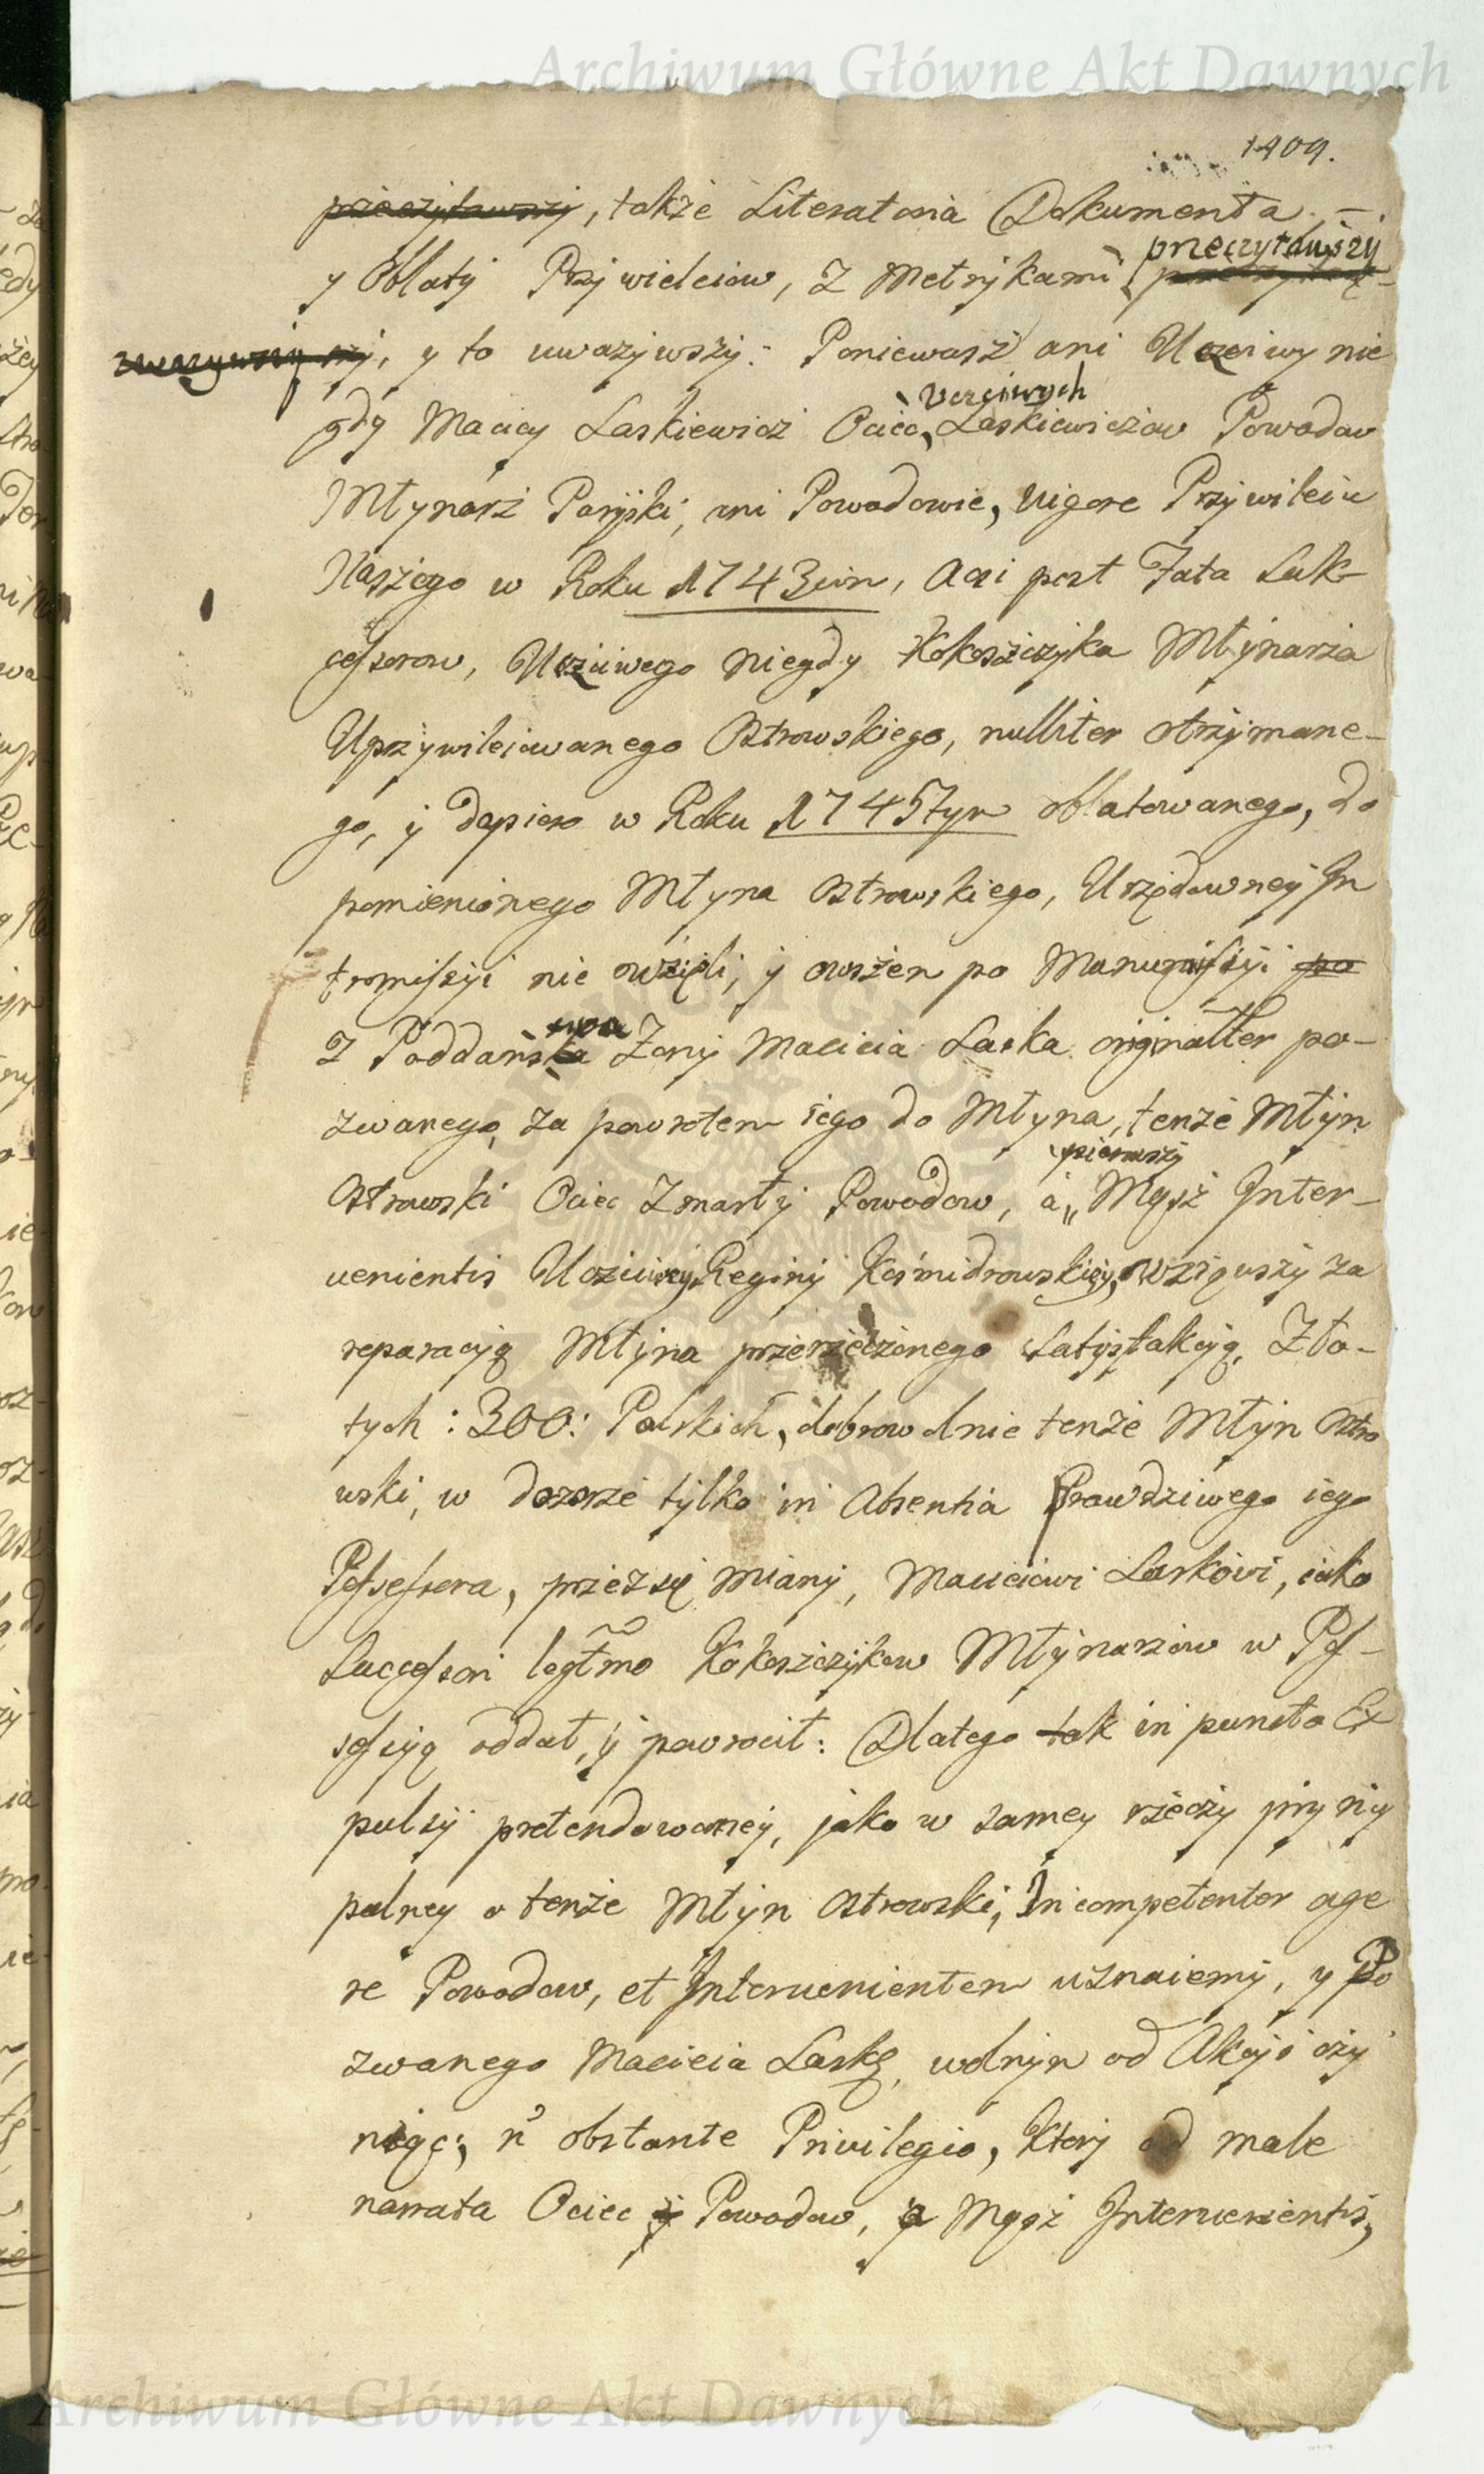 Archiwum Główne Akt Dawnych
1909.
przeczytawszy, także Literatoria Dokumenta. –
przeczytawszy
y Oblaty Przywileiow, z Metrykami
szy, y to uwazywszy: Poniewasz ani Uczciwy nie
Uczciwych
gdy Maciey Laskiewicz Ociec, Laskiewiczow Powodow
Młynarz Paryski, ani Powodowie, vigore Przywileiu
Naszego w Roku 1743cim, Acsi post Fata Suk-
cessorow, Uczciwego niegdy Kokoszczyka Młynarza
Uprzywileiowanego Ostrowskiego, nulliter otrzymane-
go, y dopiero w Roku 1745tym oblatowanego, do
pomienionego Młyna Ostrowskiego, Urzędowney In
tromissyi nie wzięli, y owszem po Manumissyi po
z Poddanstwa Zony Macieia Laska originalter po-
zwanego, za powrotem iego do Młyna, tenże Młyn
pierwszy
Ostrowski Ociec Zmarły Powodow, a Mąż Inter-
uenientis Uczciwey Reginy Kośmidrowskiey, wziąwszy za
reparacyą Młyna przerzeczonego Satysfakcyą, Zło-
tych : 300: Polskich, dobrowolnie tenże Młyn Ostro
wski, w dozorze tylko in Absentia Prawdziwego iego
Possessora, przez się miany, Macieiowi Laskowi, iako
Successori legtmo Kokoszczykow Młynarzow w Pos-
sessyą oddał, y powrocił: Dlatego tak in puncto Ex
pulsyi pretendowaney, jako w samey rzeczy pryncy
palney o tenże Młyn Ostrowski, Incompetenter age
re Powodow, et Interuenientem uznaiemy, y Po
zwanego Macieia Laskę, wolnym od Akcyi czy
niąc; n obstante Privilegio, Ktory ad male
narrata Ociec Powodow, a Mąż Interuenientis,
Archiwum Główne Akt Dawnych